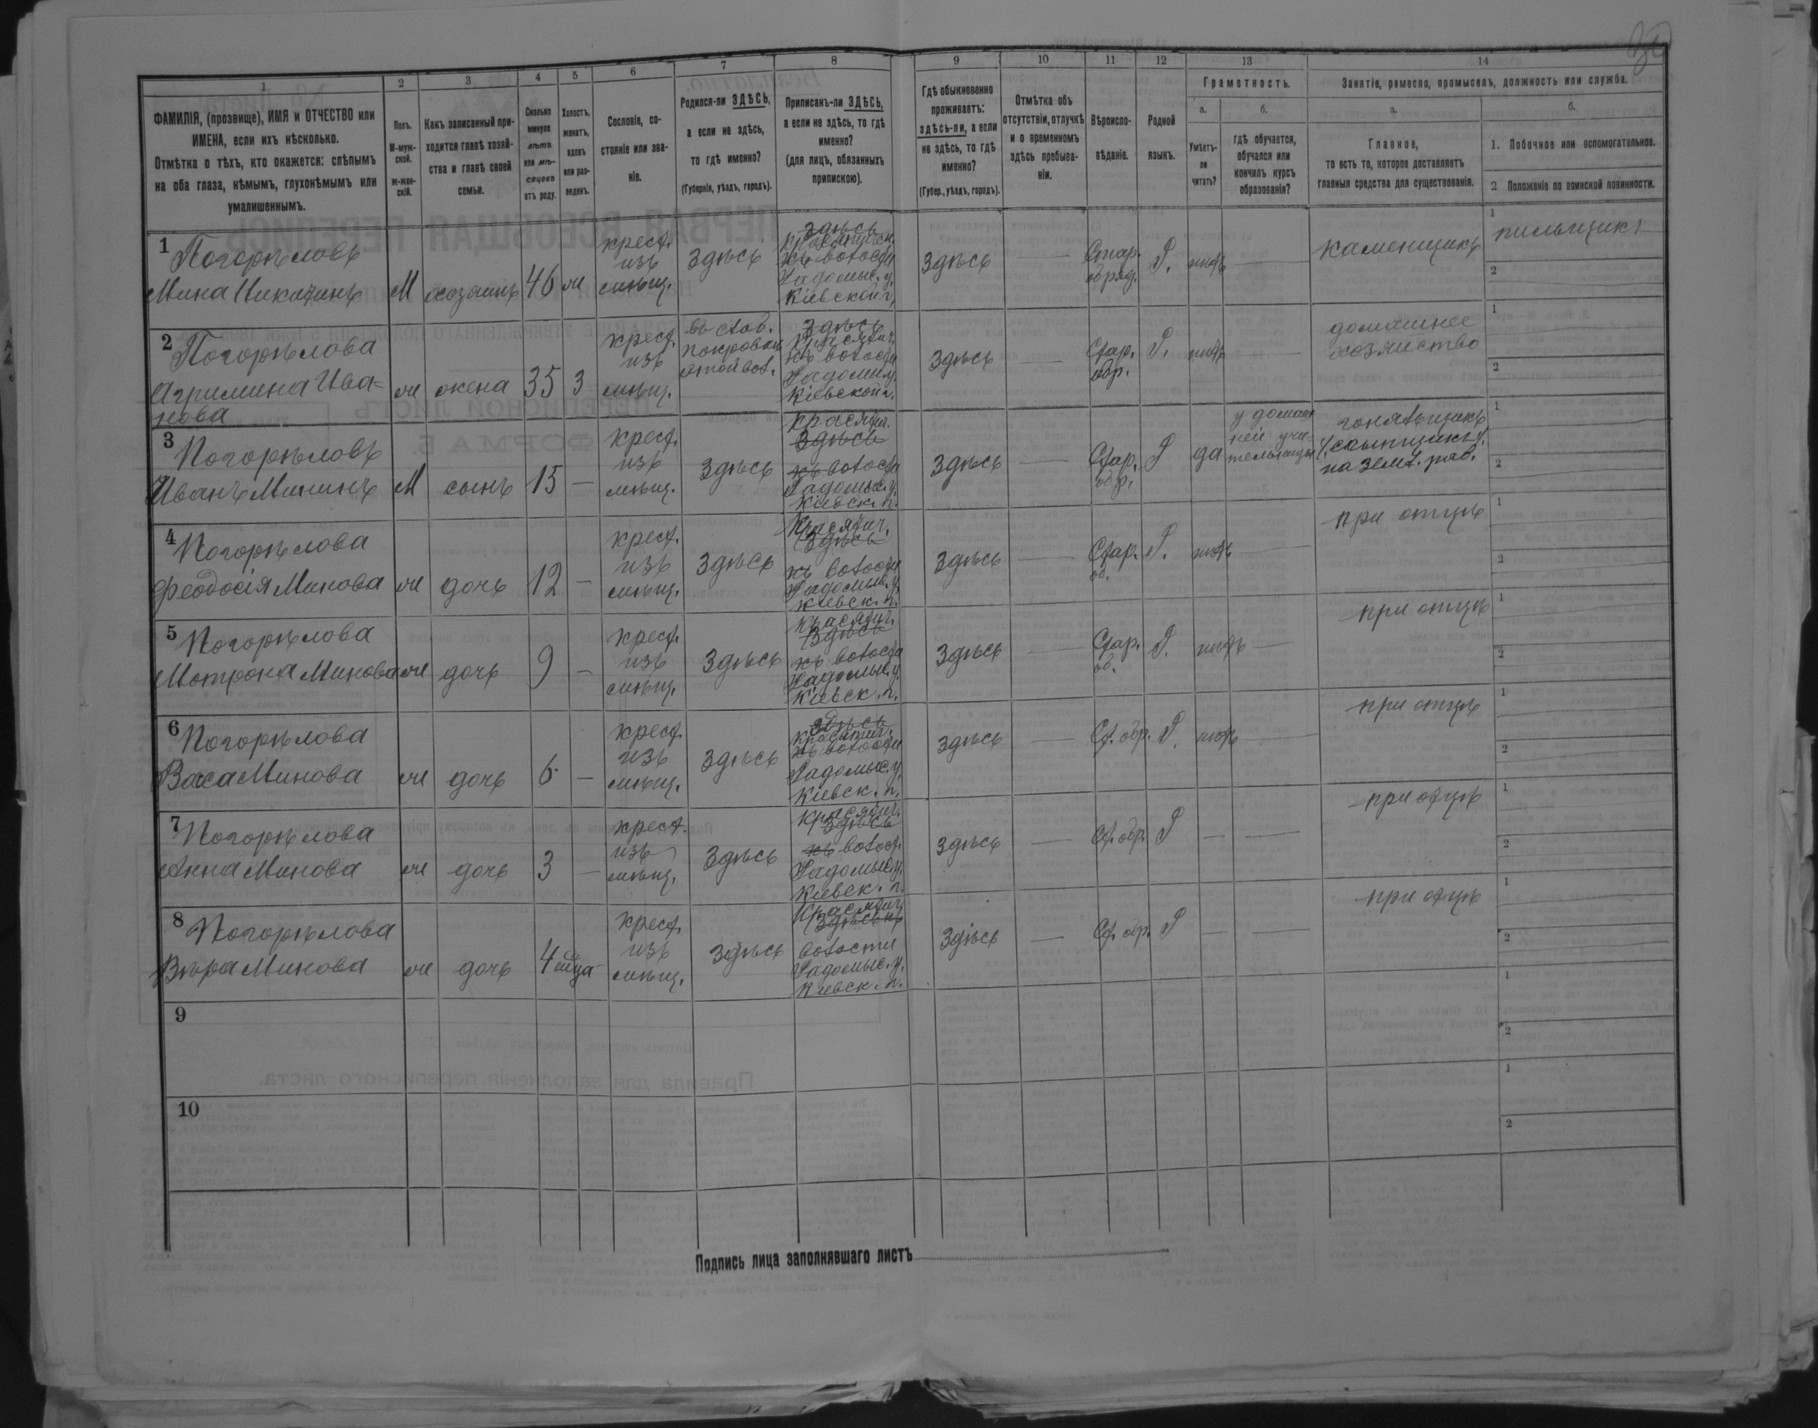 1 2 3 4 5 6 7 8 9 10 11 12 13 14
ФАМИЛІЯ, (прозвище), ИМЯ и ОТЧЕСТВО или
ИМЕНА, если ихъ нѣсколько.
Отмѣтка о тѣхъ, кто окажется: слѣпымъ
на оба глаза, нѣмымъ, глухонѣмымъ или
умалишеннымъ.
Полъ.
М-муж-
ской.
ж-жен-
скій.
Какъ записанный при-
ходится главѣ хозяй-
ства и главѣ своей
семьи.
Сколько
минуло
лѣтъ
или мѣ-
сяцевъ
отъ роду.
Холостъ,
женатъ,
вдовъ
или раз-
веденъ.
Сословіе, со-
стояніе или зва-
ніе.
Родился-ли ЗДѢСЬ,
а если не здѣсь,
то гдѣ именно?
(Губернія, уѣздъ, городъ).
Приписанъ-ли ЗДѢСЬ,
а если не здѣсь, то гдѣ
именно?
(для лицъ, обязанныхъ
припискою).
Гдѣ обыкновенно
проживаетъ:
здѣсь-ли, а если
не здѣсь, то гдѣ
именно?
(Губер., уѣздъ, городъ).
Отмѣтка объ
отсутствіи, отлучкѣ
и о временномъ
здѣсь пребыва-
ніи.
Вѣроиспо-
вѣданіе.
Родной
языкъ.
Грамотность.
а.
Умѣетъ-
ли
читать?
б.
гдѣ обучается,
обучался или
кончилъ курсъ
образованія?
Занятіе, ремесло, промыселъ, должность или служба.
а.
Главное,
то есть то, которое доставляетъ
главныя средства для существованія.
б.
1. Побочное или вспомогательное.
2 Положеніе по воинской повинности.
1 Погорѣловъ
Мина Никитинъ
М
хозяинъ
46
ж
крест.
изъ
мѣщ.
здѣсь
здѣсь
волости
Радомыс. у.
Кіевской г.
здѣсь
Стар.
обряд.
Р.
нѣтъ
каменщикъ
1 пильщикъ
2
2 Погорѣлова
Ива-
нова
ж
жена
35
З
крест.
изъ
мѣщ.
покровск.
здѣсь
къ волости
Радомыс. у.
Кіевской г.
здѣсь
Стар.
обр.
Р.
нѣтъ
домашнее
хозяйство
1
2
3 Погорѣловъ
Иванъ Мининъ
М
сынъ
15
крест.
изъ
мѣщ.
здѣсь
Красятич.
здѣсь
къ волости
Радомыс. у.
Кіевск. г.
здѣсь
Стар.
обр.
Р
да
у домаш
ней учи-
тельницы
на земл. раб.
1
2
4 Погорѣлова
Феодосія Минова
ж
дочь
12
крест.
изъ
мѣщ.
здѣсь
Красятич.
здѣсь
къ волости
Радомыс. у.
Кіевск. г.
здѣсь
Стар.
об.
Р.
нѣтъ
при отцѣ
1
2
5 Погорѣлова
Мотрона Минова
ж
дочь
9
крест.
изъ
мѣщ.
здѣсь
Красятич.
здѣсь
къ волости
Радомыс. у.
Кіевск. г.
здѣсь
Стар.
об.
Р.
нѣтъ
при отцѣ
1
2
6 Погорѣлова
Васа Минова
ж
дочь
6
крест.
изъ
мѣщ.
здѣсь
здѣсь
Красятич.
къ волости
Радомыс. у.
Кіевск. г.
здѣсь
Ст. обр.
Р.
нѣтъ
при отцѣ
1
2
7 Погорѣлова
Анна Минова
ж
дочь
3
крест.
изъ
мѣщ.
здѣсь
Красятич.
здѣсь
къ волост.
Радомыс. у.
Кіевск. г.
здѣсь
Ст. обр.
Р
при отцѣ
1
2
8 Погорѣлова
Вѣра Минова
ж
дочь
4 м-ца
крест.
изъ
мѣщ.
здѣсь
Красятич.
здѣсь къ
волости
Радомыс. у.
Кіевск. г.
здѣсь
Ст. обр.
Р
при отцѣ
1
2
9
1
2
10
1
2
Подпись лица заполнявшаго листъ